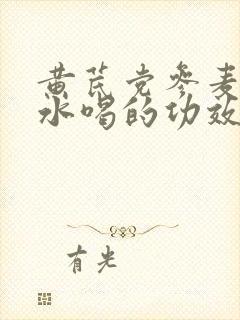 黄芪党参麦
水喝的功效
有光